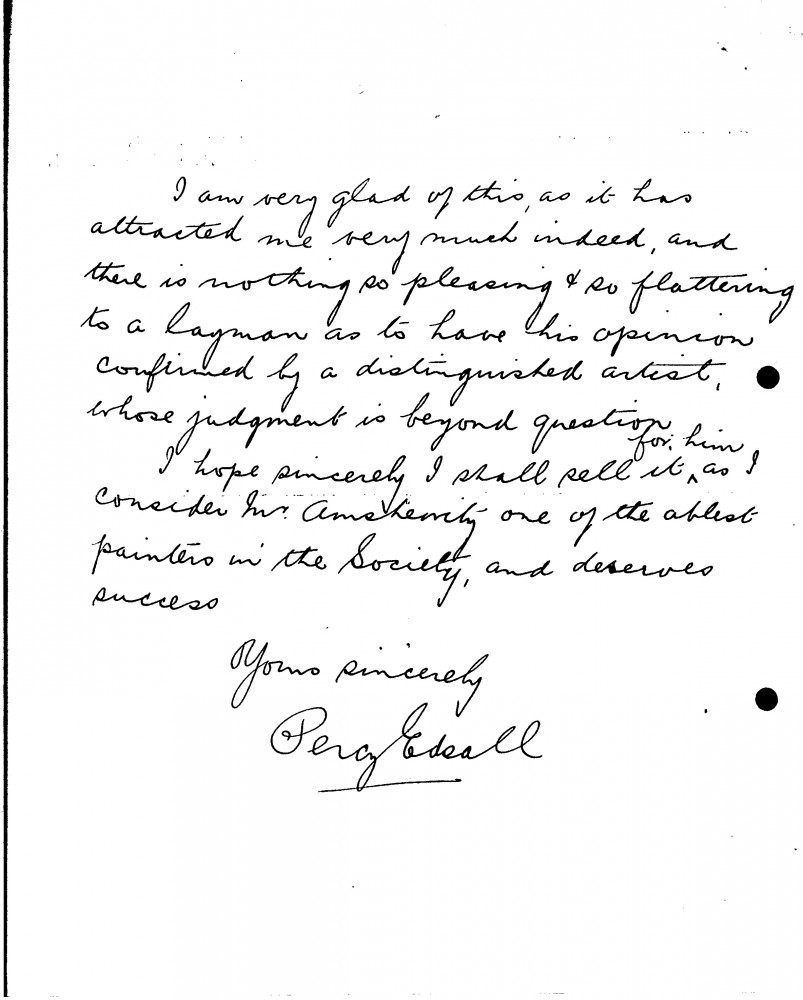 I am very glad of this, as it has
attracted me very much indeed, and
there is nothing so pleasing & so flattering
to a layman as to have his opinion
confirmed by a distinguished artist,
whose judgment is beyond question
for him
I hope sincerely I shall sell it ^ as I
consider Mr. Amshewitz one of the ablest
painters in the Society, and deserves
success
Yours sincerely
Percy Edsall